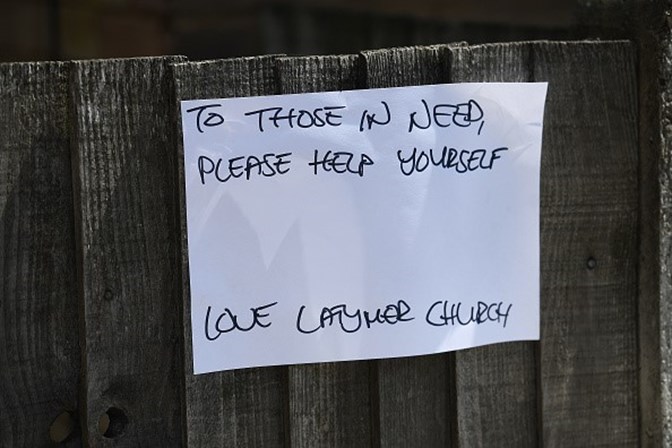 TO THOSE IN NEED,
PLEASE HELP YOURSELF
LOVE LATYMER CHURCH